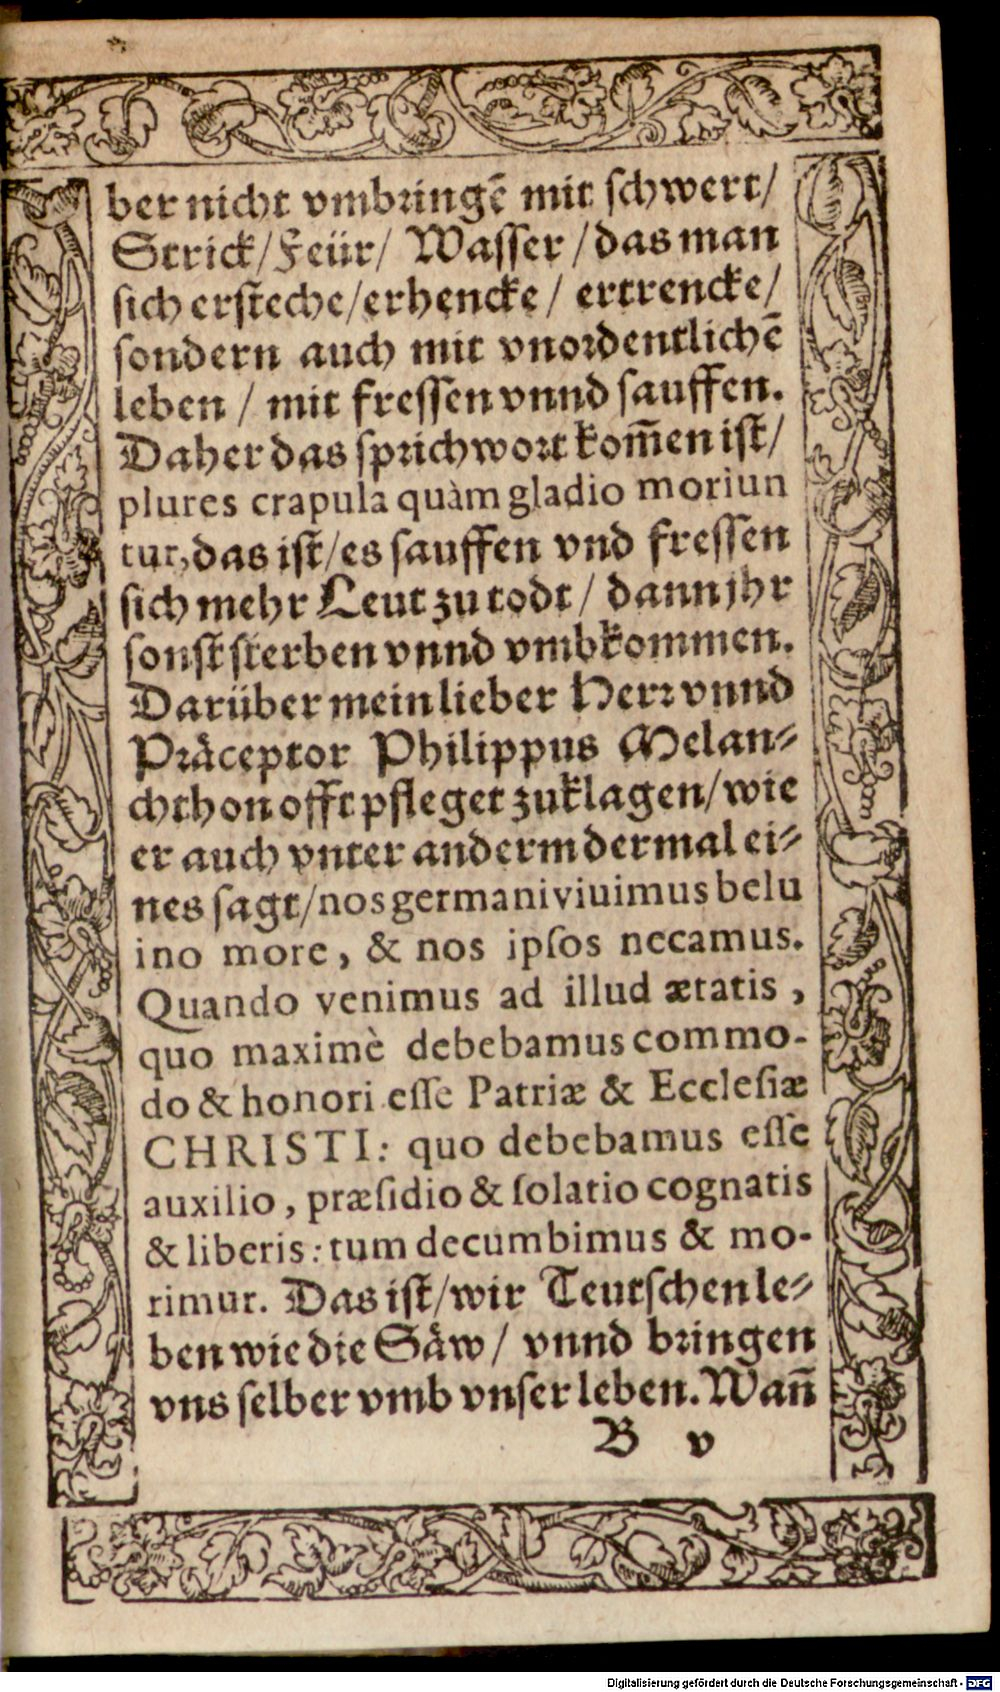 ber nicht vmbringē mit ſchwert/
Strick/Feür/ Waſſer /das man
ſich erſteche/erhencke / ertrencke/
ſondern auch mit vnordentlichē
leben / mit freſſen vnnd ſauffen.
Daher das ſprichwort kom̄en iſt/
plures crapula quàm gladio moriun
tur, das iſt/es ſauffen vnd freſſen
ſich mehr Leut zu todt / dann jhr
ſonſt ſterben vnnd vmbkommen.
Darüber mein lieber Herr vnnd
Präceptor Philippus Melan-
chthon offt pfleget zuklagen/wie
er auch vnter anderm dermal ei-
nes ſagt/nos germani viuimus belu
ino more, & nos ipſos necamus.
Quando venimus ad illud ætatis,
quo maximè debebamus commo-
do & honori eſſe Patriæ & Eccleſiæ
CHRISTI: quo debebamus eſſe
auxilio, præſidio & ſolatio cognatis
& liberis: tum decumbimus & mo-
rimur. Das iſt/wir Teutſchen le-
ben wie die Säw/ vnnd bringen
vns ſelber vmb vnſer leben. Wan̄
B v
Digitalisierung gefördert durch die Deutsche Forschungsgemeinschaft - DFG